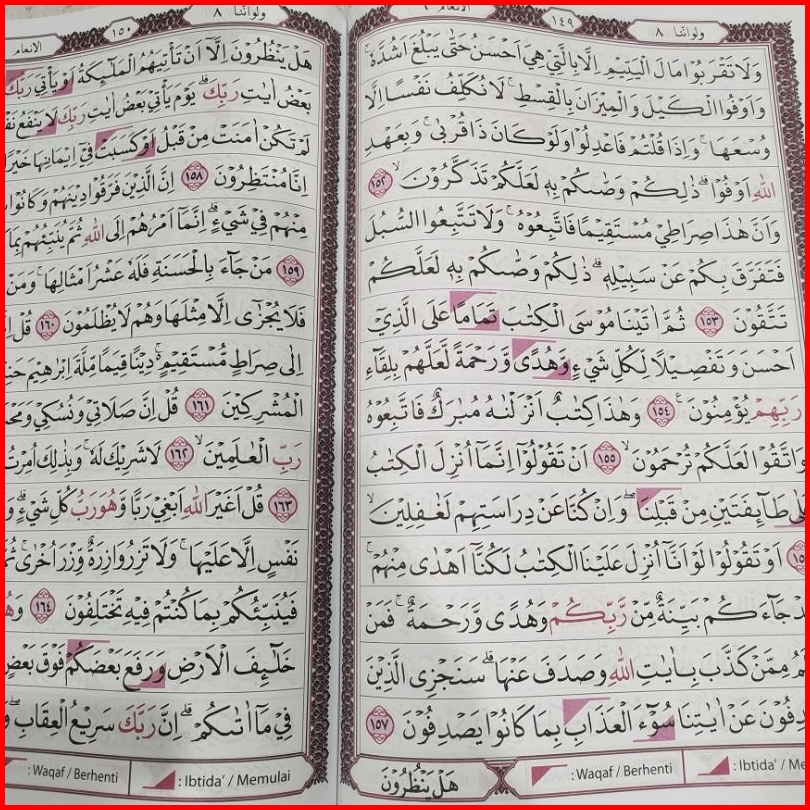 ولواننا ٨
١٤٩
الانعام ٦
وَلَا تَقْرَبُوْا مَالَ الْيَتِيْمِ اِلَّا بِالَّتِيْ هِيَ اَحْسَنُ حَتّٰى يَبْلُغَ اَشُدَّهٗ ۚ
وَاَوْفُوا الْكَيْلَ وَالْمِيْزَانَ بِالْقِسْطِ ۚ لَا نُكَلِّفُ نَفْسًا اِلَّا
وُسْعَهَا ۚ وَاِذَا قُلْتُمْ فَاعْدِلُوْا وَلَوْ كَانَ ذَا قُرْبٰى ۚ وَبِعَهْدِ
اللّٰهِ اَوْفُوْا ۗ ذٰلِكُمْ وَصّٰىكُمْ بِهٖ لَعَلَّكُمْ تَذَكَّرُوْنَ ۙ ١٥٢
وَاَنَّ هٰذَا صِرَاطِيْ مُسْتَقِيْمًا فَاتَّبِعُوْهُ ۚ وَلَا تَتَّبِعُوا السُّبُلَ
فَتَفَرَّقَ بِكُمْ عَنْ سَبِيْلِهٖ ۗ ذٰلِكُمْ وَصّٰىكُمْ بِهٖ لَعَلَّكُمْ
تَتَّقُوْنَ ١٥٣ ثُمَّ اٰتَيْنَا مُوْسَى الْكِتٰبَ تَمَامًا عَلَى الَّذِيْ
اَحْسَنَ وَتَفْصِيْلًا لِّكُلِّ شَيْءٍ وَّهُدًى وَّرَحْمَةً لَّعَلَّهُمْ بِلِقَاۤءِ
رَبِّهِمْ يُؤْمِنُوْنَ ۚ ١٥٤ وَهٰذَا كِتٰبٌ اَنْزَلْنٰهُ مُبٰرَكٌ فَاتَّبِعُوْهُ
وَاتَّقُوْا لَعَلَّكُمْ تُرْحَمُوْنَ ۙ ١٥٥ اَنْ تَقُوْلُوْٓا اِنَّمَآ اُنْزِلَ الْكِتٰبُ
طَاۤىِٕفَتَيْنِ مِنْ قَبْلِنَا ۖ وَاِنْ كُنَّا عَنْ دِرَاسَتِهِمْ لَغٰفِلِيْنَ ۙ
اَوْ تَقُوْلُوْا لَوْ اَنَّآ اُنْزِلَ عَلَيْنَا الْكِتٰبُ لَكُنَّآ اَهْدٰى مِنْهُمْ ۚ
جَاۤءَكُمْ بَيِّنَةٌ مِّنْ رَّبِّكُمْ وَهُدًى وَّرَحْمَةٌ ۚ فَمَنْ
مِمَّنْ كَذَّبَ بِاٰيٰتِ اللّٰهِ وَصَدَفَ عَنْهَا ۗ سَنَجْزِى الَّذِيْنَ
عَنْ اٰيٰتِنَا سُوْۤءَ الْعَذَابِ بِمَا كَانُوْا يَصْدِفُوْنَ ١٥٧
هَلْ يَنْظُرُوْنَ
: Waqaf / Berhenti
: Ibtida' / Me
ولواننا ٨
١٥٠
الانعام
هَلْ يَنْظُرُوْنَ اِلَّآ اَنْ تَأْتِيَهُمُ الْمَلٰۤىِٕكَةُ اَوْ يَأْتِيَ رَبُّكَ
بَعْضُ اٰيٰتِ رَبِّكَ ۗ يَوْمَ يَأْتِيْ بَعْضُ اٰيٰتِ رَبِّكَ لَا يَنْفَعُ
لَمْ تَكُنْ اٰمَنَتْ مِنْ قَبْلُ اَوْ كَسَبَتْ فِيْٓ اِيْمَانِهَا خَيْرًا
اِنَّا مُنْتَظِرُوْنَ ١٥٨ اِنَّ الَّذِيْنَ فَرَّقُوْا دِيْنَهُمْ وَكَانُوْا
مِنْهُمْ فِيْ شَيْءٍ ۗ اِنَّمَآ اَمْرُهُمْ اِلَى اللّٰهِ ثُمَّ يُنَبِّئُهُمْ بِمَا
١٥٩ مَنْ جَاۤءَ بِالْحَسَنَةِ فَلَهٗ عَشْرُ اَمْثَالِهَا ۚ وَمَنْ
فَلَا يُجْزٰٓى اِلَّا مِثْلَهَا وَهُمْ لَا يُظْلَمُوْنَ ١٦٠ قُلْ
اِلٰى صِرَاطٍ مُّسْتَقِيْمٍ ۚ دِيْنًا قِيَمًا مِّلَّةَ اِبْرٰهِيْمَ
الْمُشْرِكِيْنَ ١٦١ قُلْ اِنَّ صَلَاتِيْ وَنُسُكِيْ
رَبِّ الْعٰلَمِيْنَ ۙ ١٦٢ لَا شَرِيْكَ لَهٗ ۚ وَبِذٰلِكَ اُمِرْتُ
١٦٣ قُلْ اَغَيْرَ اللّٰهِ اَبْغِيْ رَبًّا وَّهُوَ رَبُّ كُلِّ شَيْءٍ ۗ
نَفْسٍ اِلَّا عَلَيْهَا ۚ وَلَا تَزِرُ وَازِرَةٌ وِّزْرَ اُخْرٰى ۚ
فَيُنَبِّئُكُمْ بِمَا كُنْتُمْ فِيْهِ تَخْتَلِفُوْنَ ١٦٤
خَلٰۤىِٕفَ الْاَرْضِ وَرَفَعَ بَعْضَكُمْ فَوْقَ بَعْضٍ
فِيْ مَآ اٰتٰىكُمْ ۗ اِنَّ رَبَّكَ سَرِيْعُ الْعِقَابِ ۖ
: Waqaf / Berhenti
: Ibtida' / Memulai